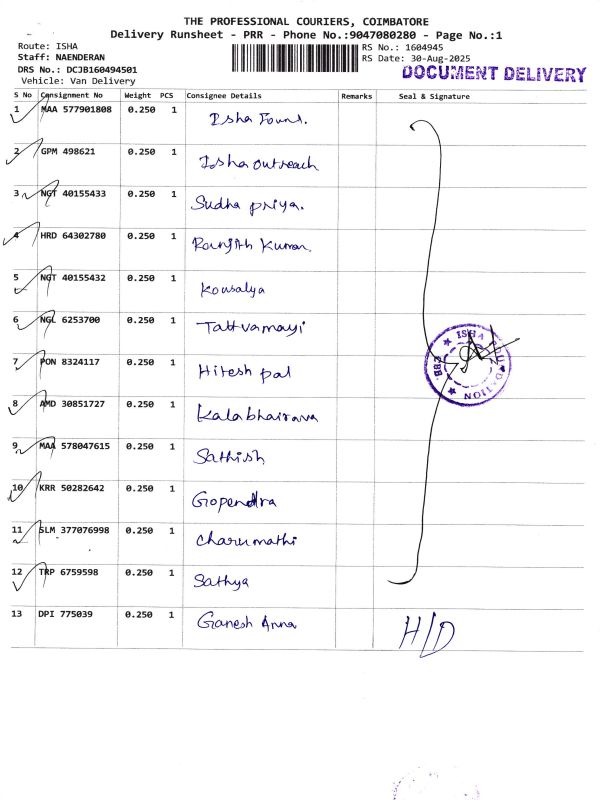 THE PROFESSIONAL COURIERS, COIMBATORE
Delivery Runsheet - PRR - Phone No.:9047080280 - Page No.:1
Route: ISHA
RS No.: 1604945
Staff: NAENDERAN
RS Date: 30-Aug-2025
DRS No.: DCJB160494501
DOCUMENT DELIVERY
Vehicle: Van Delivery
S No Consignment No Weight PCS Consignee Details Remarks Seal & Signature
1 MAA 577901808 0.250 1 Isha Foun.
2 GPM 498621 0.250 1 Isha outreach
3 NGT 40155433 0.250 1 Sudha priya.
4 HRD 64302780 0.250 1 Ranjith Kumar.
5 NGT 40155432 0.250 1 Kousalya
6 NGL 6253700 0.250 1 Tattvamayi
7 PON 8324117 0.250 1 Hitesh pal
8 AMD 30851727 0.250 1 Kalabhairava
9 MAA 578047615 0.250 1 Sathish
10 KRR 50282642 0.250 1 Gopendra
11 SLM 377076998 0.250 1 Charumathi
12 TRP 6759598 0.250 1 Sathya
13 DPI 775039 0.250 1 Ganesh Anna H/D
ISHA FOUNDATION